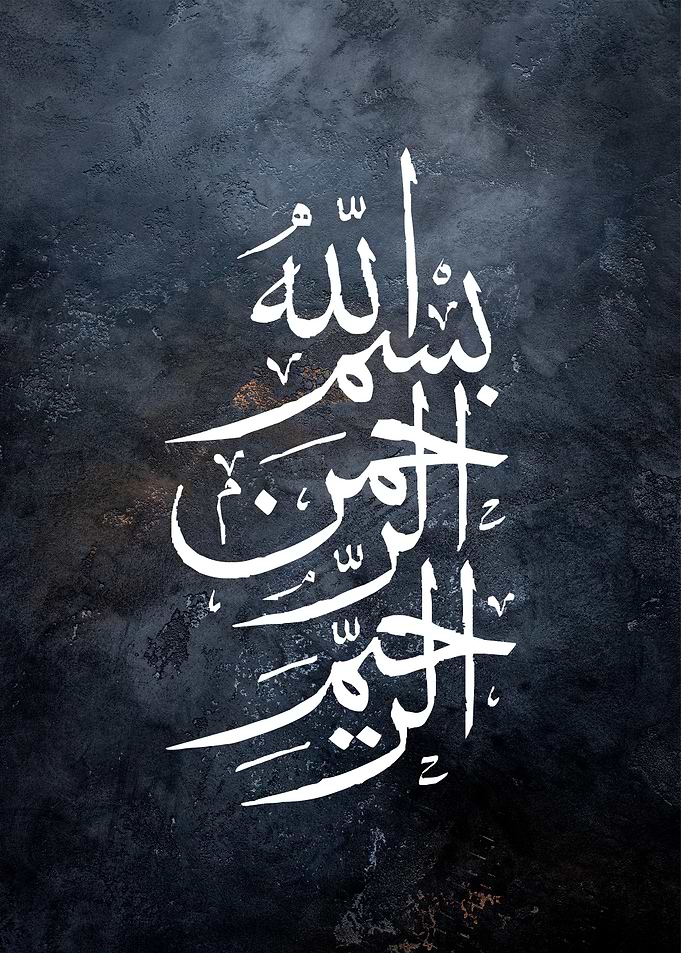 بسم اللهُ
الرّحمن
الرحيمّ